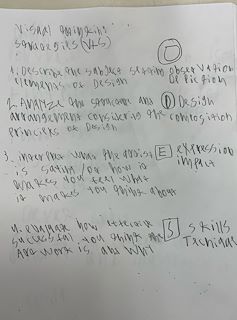 Visual thinking
strategies (VTS)
1. Describe the subject setting observation
elements of design
2. Analize the structure and D Design
arrangement consider the composition
principles of design
3. interpret what the artist E expression
is saying/or how it impact
makes you feel what
it makes you think about
4. evaluate how
successful you think the S skills
Art work is and why